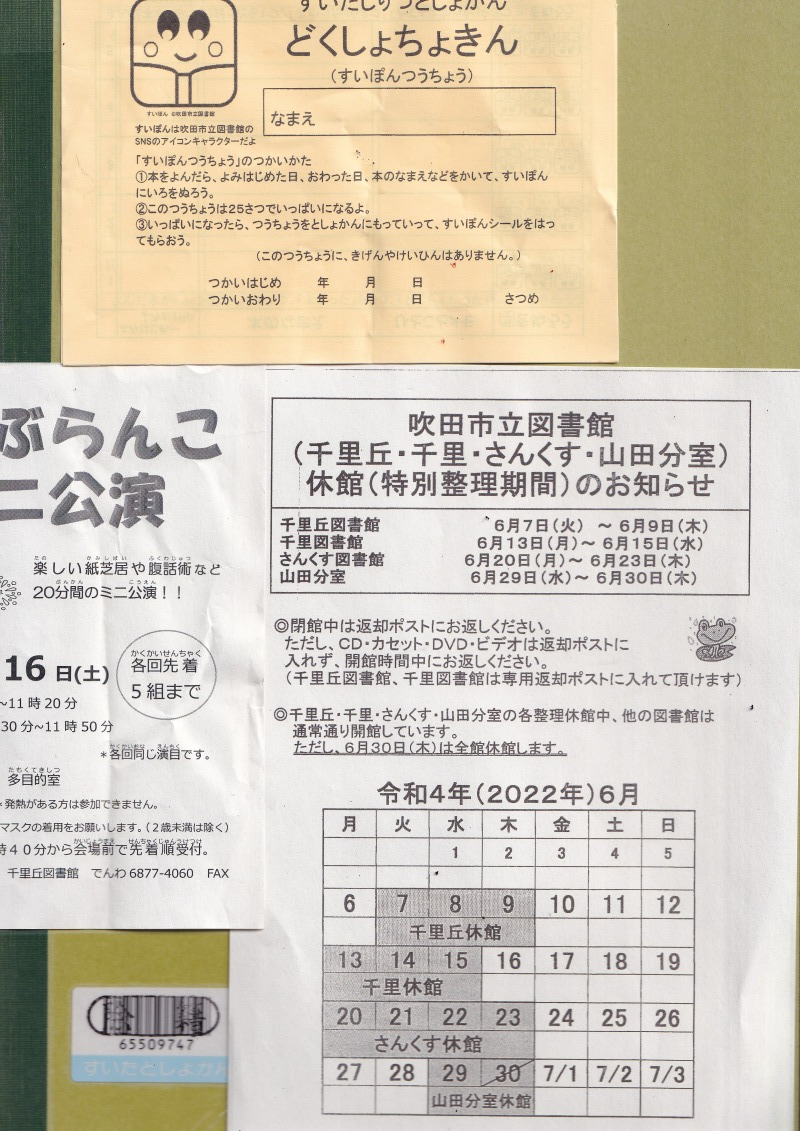 すいたしりつとしょかん
どくしょちょきん
(すいぽんつうちょう)
すいぽん ©吹田市立図書館
なまえ
すいぽんは吹田市立図書館の
SNSのアイコンキャラクターだよ
「すいぽんつうちょう」のつかいかた
①本をよんだら、よみはじめた日、おわった日、本のなまえなどをかいて、すいぽん
にいろをぬろう。
②このつうちょうは25さつでいっぱいになるよ。
③いっぱいになったら、つうちょうをとしょかんにもっていって、すいぽんシールをはっ
てもらおう。
(このつうちょうに、きげんやけいひんはありません。)
つかいはじめ 年 月 日
つかいおわり 年 月 日 さつめ
ぶらんこ
ニ公演
たの かみしばい ふくわじゅつ
楽しい紙芝居や腹話術など
ぷんかん こうえん
20分間のミニ公演!!
16日(土)
かくかいせんちゃく
各回先着
5組まで
~11時20分
30分~11時50分
*各回同じ演目です。
たもくてきしつ
多目的室
*発熱がある方は参加できません。
マスクの着用をお願いします。(2歳未満は除く)
時40分から会場前で先着順受付。
千里丘図書館 でんわ6877-4060 FAX
吹田市立図書館
(千里丘・千里・さんくす・山田分室)
休館(特別整理期間)のお知らせ
千里丘図書館 6月7日(火) ~ 6月9日(木)
千里図書館 6月13日(月) ~ 6月15日(水)
さんくす図書館 6月20日(月) ~ 6月23日(木)
山田分室 6月29日(水) ~ 6月30日(木)
◎閉館中は返却ポストにお返しください。
ただし、CD・カセット・DVD・ビデオは返却ポストに
入れず、開館時間中にお返しください。
(千里丘図書館、千里図書館は専用返却ポストに入れて頂けます)
◎千里丘・千里・さんくす・山田分室の各整理休館中、他の図書館は
通常通り開館しています。
ただし、6月30日(木)は全館休館します。
令和4年(2022年)6月
月 火 水 木 金 土 日
1 2 3 4 5
6 7 8 9 10 11 12
千里丘休館
13 14 15 16 17 18 19
千里休館
20 21 22 23 24 25 26
さんくす休館
27 28 29 30 7/1 7/2 7/3
山田分室休館
65509747
すいたとしょかん